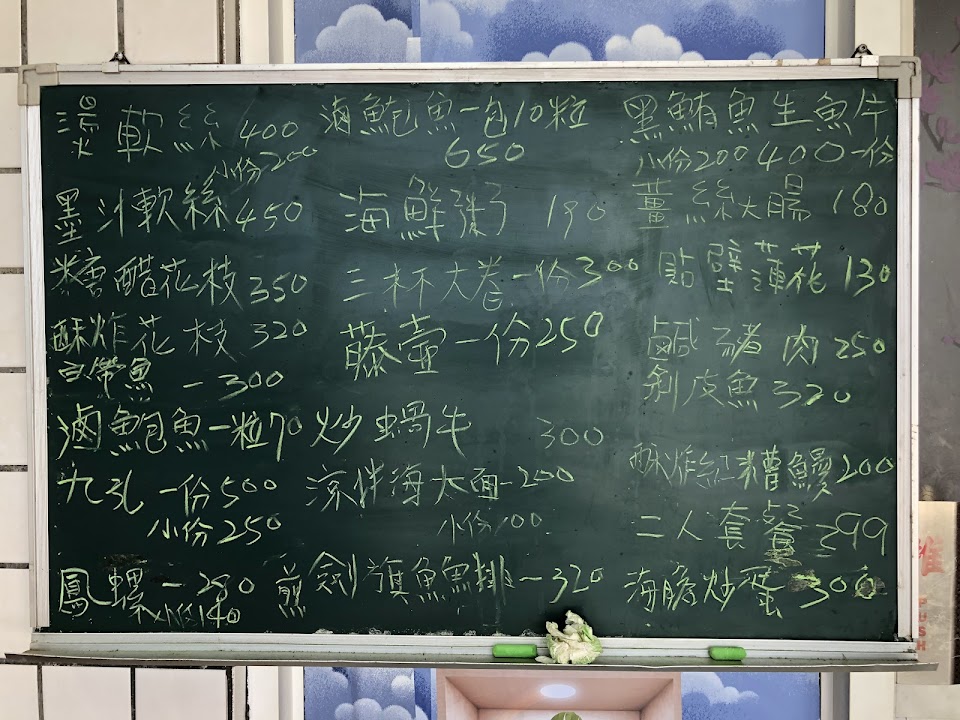 燙軟絲400
小份200
墨汁軟絲450
糖醋花枝350
酥炸花枝320
白帶魚一300
滷鮑魚一粒70
九孔一份500
小份250
鳳螺一280
小份140
滷鮑魚一包10粒
650
海鮮粥190
三杯大卷一份300
藤壺一份250
炒蝸牛300
涼拌海大面-200
小份100
煎劍旗魚魚排一320
黑鮪魚生魚片
小份200 400一份
薑絲大腸180
貼壁蓮花130
鹹豬肉250
剝皮魚320
酥炸紅糟鰻200
二人套餐399
海膽炒蛋300